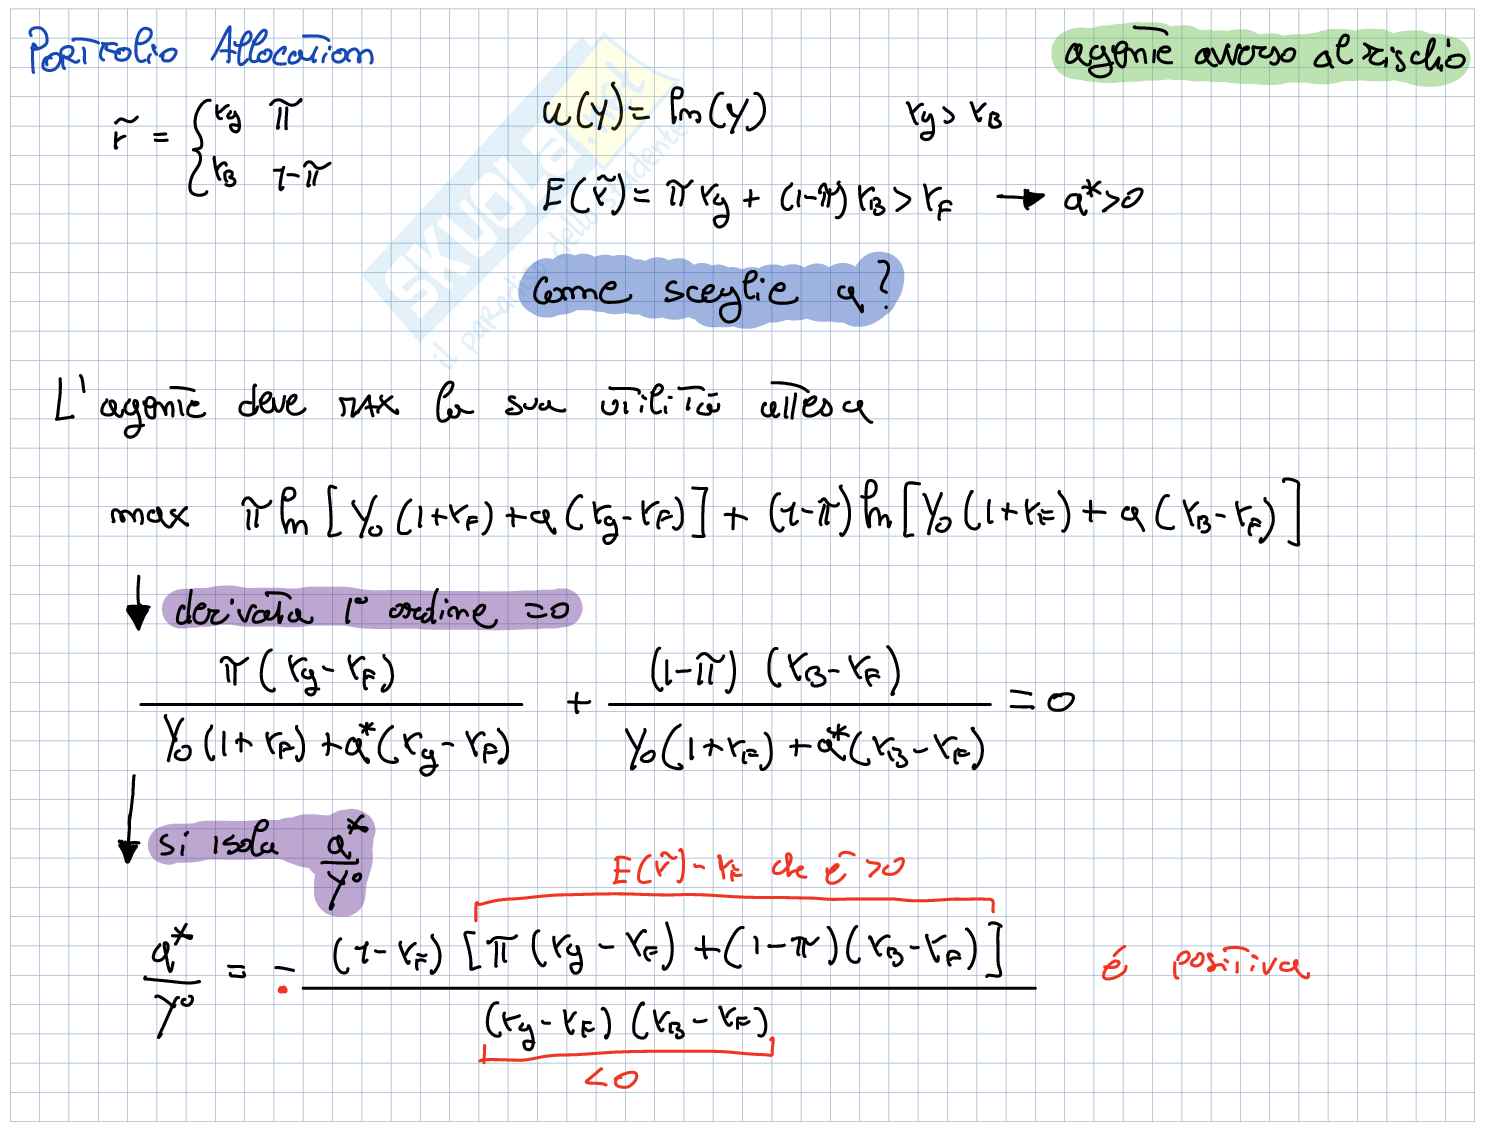 Portfolio Allocation
agente avverso al rischio
r̃ = { rg π
rB 1-π
u(Y) = ln(Y) rg > rB
E(r̃) = π rg + (1-π) rB > rF → a* > 0
Come sceglie a?
L'agente deve MAX la sua utilità attesa
max π ln [Y0 (1+rF) + a (rg-rF)] + (1-π) ln [Y0 (1+rF) + a (rB-rF)]
↓ derivata 1° ordine = 0
π (rg-rF) / Y0 (1+rF) + a* (rg-rF) + (1-π) (rB-rF) / Y0 (1+rF) + a* (rB-rF) = 0
↓ si isola a* / Y0
E(r̃) - rF che è > 0
a* / Y0 = - (1-rF) [π (rg-rF) + (1-π) (rB-rF)] / (rg-rF) (rB-rF) é positiva
< 0